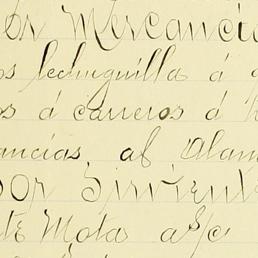 or Mercancía
os lechuguilla á
os á carreros á
ancías, al Alam
por Sirvient
te Mota a/c